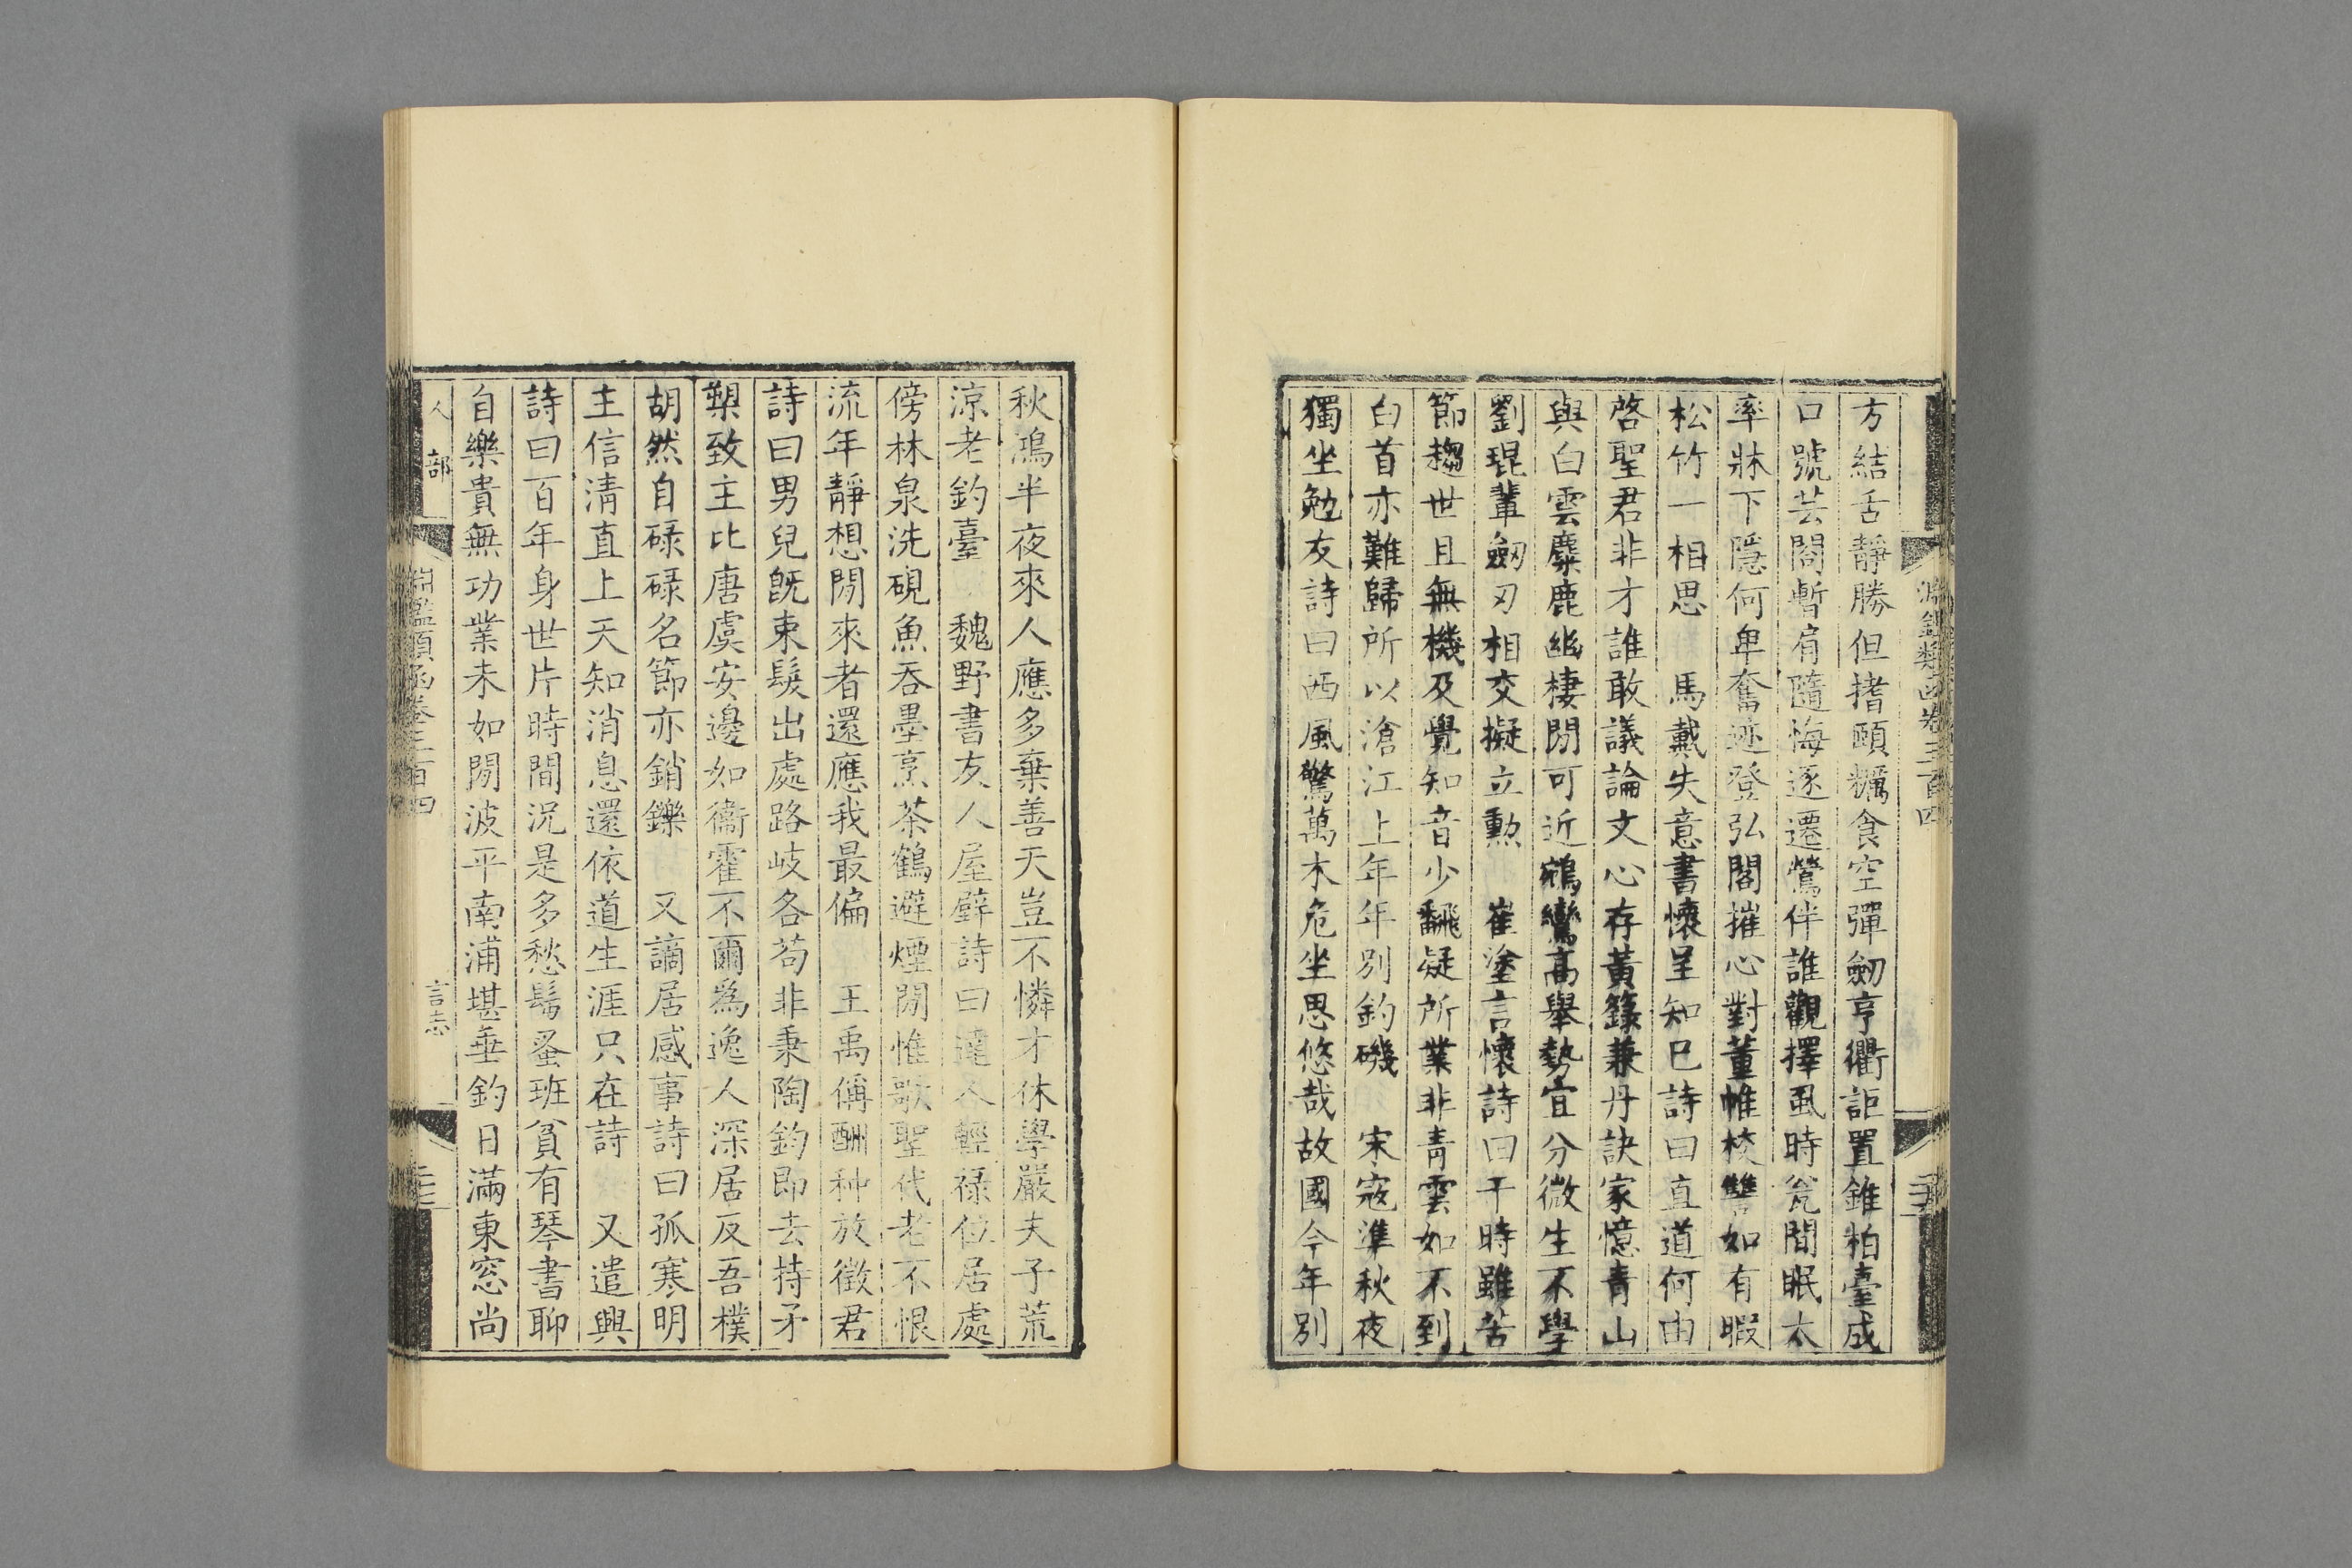 方結舌靜勝但搘頤糲食空彈劒亨衢詎置錐柏臺成
口號芸閣暫肩隨悔逐遷鶯伴誰觀擇虱時瓮間眠太
率牀下隱何卑奮迹登弘閣摧心對董帷校讐如有暇
松竹一相思　馬戴失意書懷呈知巳詩曰直道何由
啓聖君非才誰敢議論文心存黃籙兼丹訣家憶青山
與白雲麋鹿幽棲閒可近鵷鸞高舉勢宜分微生不學
劉琨輩劒刃相交擬立勲　崔塗言懷詩曰干時雖苦
節趨世且無機及覺知音少飜疑所業非青雲如不到
白首亦難歸所以滄江上年年別釣磯　宋寇準秋夜
獨坐勉友詩曰西風驚萬木危坐思悠哉故國今年別
淵鑑類函卷三百四
秋鴻半夜來人應多棄善天豈不憐才休學嚴夫子荒
涼老釣臺　魏野書友人屋壁詩曰達人輕祿位居處
傍林泉洗硯魚吞墨烹茶鶴避煙閒惟歌聖代老不恨
流年靜想閒來者還應我最偏　王禹偁酬种放徵君
詩曰男兒旣束髮出處路岐各苟非秉陶鈞即去持矛
槊致主比唐虞安邊如衞霍不爾為逸人深居反吾樸
胡然自碌碌名節亦銷鑠　又謫居感事詩曰孤寒明
主信淸直上天知消息還依道生涯只在詩　又遣興
詩曰百年身世片時間況是多愁鬂蚤班貧有琴書聊
自樂貴無功業未如閒波平南浦堪垂釣日滿東窓尚
人部
淵鑑類函卷三百四
言志